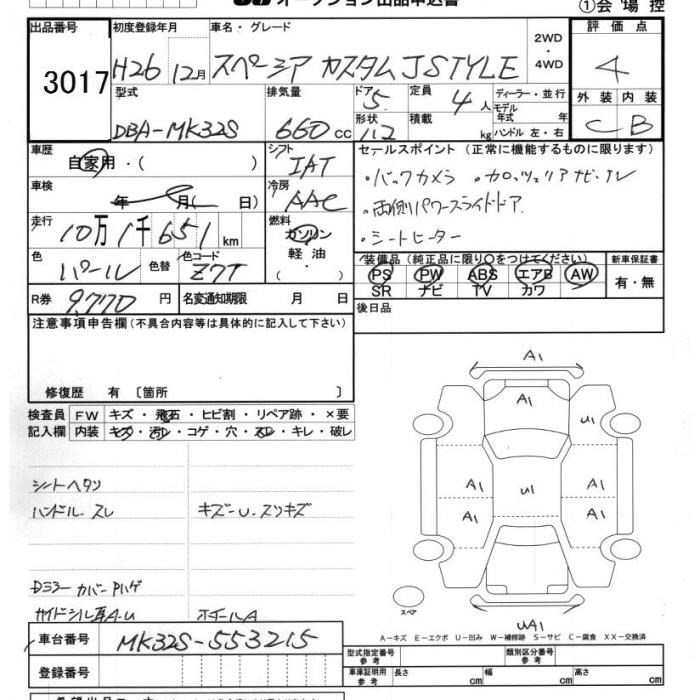 オークション出品申込書
①会場控
出品番号 3017
初度登録年月 H26 12月
車名・グレード スペーシア カスタム JSTYLE
2WD・4WD
評価点 4
外装 C 内装 B
型式 DBA-MK32S
排気量 660 cc
ドア 5
形状 112
定員 4 人
積載 kg
ディーラー・並行
モデル年式 年式
ハンドル 左・右
車歴 自家用・( )
車検 年 月( 日)
走行 10万1千651 km
色 パール 色替 色コード Z7T
R券 9,770 円 名変通知期限 月 日
シフト IAT
冷房 AAC
燃料 ガソリン 軽油
セールスポイント (正常に機能するものに限ります)
・バックカメラ
・両側パワースライドドア
・シートヒーター
装備品(純正品に限り○をつけてください)
PS PW ABS エアB AW
SR ナビ TV カワ
新車保証書
有・無
後日品
注意事項申告欄(不具合内容等は具体的に記入して下さい)
修復歴 有 〔箇所 〕
検査員記入欄
FW キズ・飛石・ヒビ割・リペア跡・×要
内装 キズ・汚レ・コゲ・穴・スレ・キレ・破レ
シートヘタリ
ハンドル.スレ キズ-U.スリキズ
Dミラーカバー Pハゲ
サイドシル耳A-U ホイールA
A1
A1
U1
A1 U1 A1
A1 A1
スペア UA1
A-キズ E-エクボ U-凹み W-補修跡 S-サビ C-腐食 XX-交換済
車台番号 MK32S-553215
登録番号
型式指定番号 参考
類別区分番号 参考
車庫証明用 参考 長さ cm 幅 cm 高さ cm